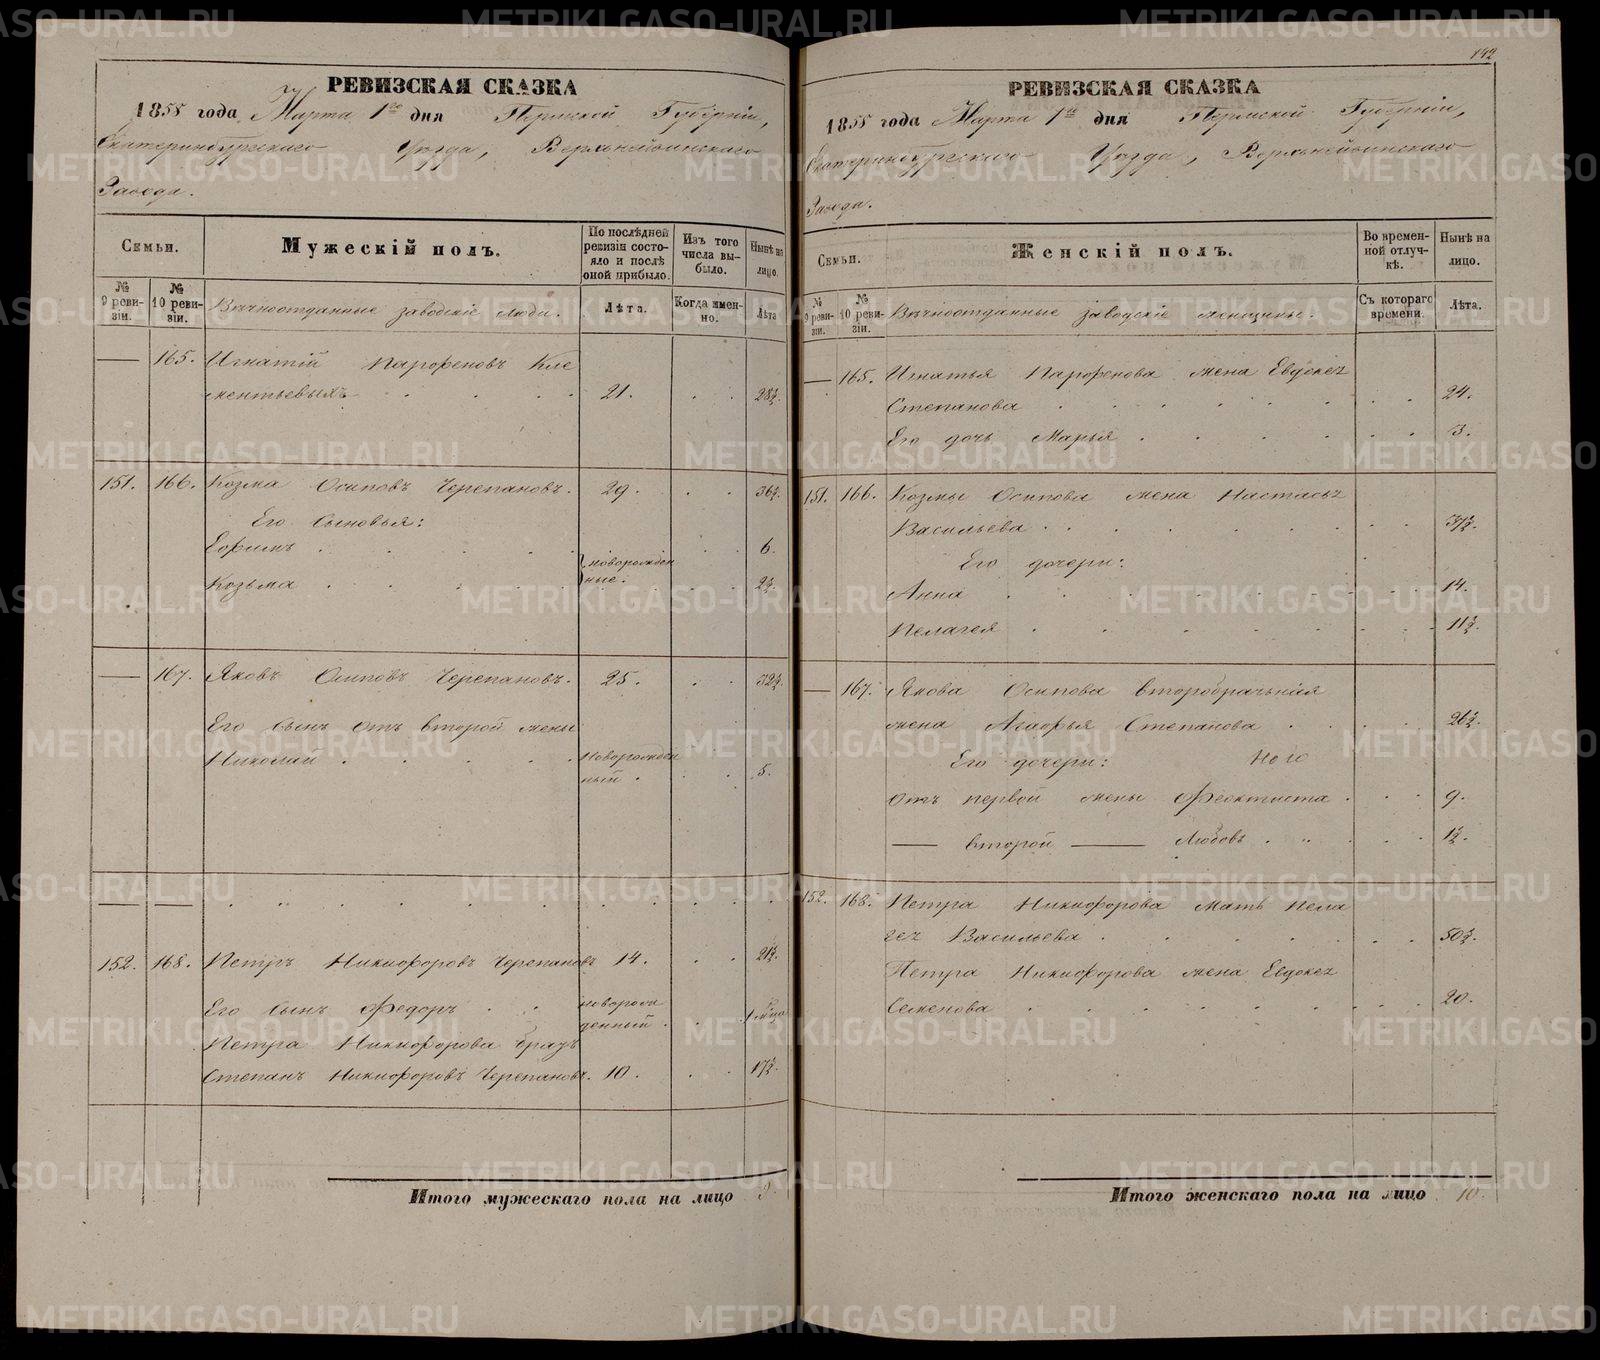 РЕВИЗСКАЯ СКАЗКА
1858 года Марта 1го дня Пермской Губерніи,
Екатеринбургскаго Уезда, Верхнейвинскаго
Завода.
Семьи.
Мужескій полъ.
По послѣдней ревизіи состояло и послѣ оной прибыло.
Изъ того числа выбыло.
Нынѣ на лицо.
№ 9 ревизіи.
№ 10 ревизіи.
Вѣчноотданные заводскіе люди.
Лѣта.
Когда именно.
Лѣта
— 165. Игнатій Парфеновъ Кле
ментьевыхъ 21. 28½.
151. 166. Козма Осиповъ Черепановъ. 29. 36½.
Его сыновья:
Ефимъ 6.
новорожден
ные.
Козьма 2½.
— 167. Яковъ Осиповъ Черепановъ. 25. 32½.
Его сынъ отъ второй жены
Николай новорожден
ный. 5.
152. 168. Петръ Никифоровъ Черепановъ 14. 21½.
Его сынъ Федоръ новорож
денный.
Петра Никифорова братъ
Степанъ Никифоровъ Черепановъ. 10. 17½.
Итого мужескаго пола на лицо 9.
142
РЕВИЗСКАЯ СКАЗКА
1858 года Марта 1го дня Пермской Губерніи,
Екатеринбургскаго Уезда, Верхнейвинскаго
Завода.
Семьи.
Женскій полъ.
Во временной отлучкѣ.
Нынѣ на лицо.
№ 9 ревизіи.
№ 10 ревизіи.
Вѣчноотданные заводскіе женщины.
Съ котораго времени.
Лѣта.
— 165. Игнатья Парфенова жена Евдокѣя
Степанова 24.
Его дочь Марья 3.
151. 166. Козмы Осипова жена Настасья
Васильева 37½.
Его дочери:
Анна 14.
Пелагея 11½.
— 167. Якова Осипова второбрачная
жена Агафья Степанова 26½.
Его дочери:
отъ первой жены Феоктиста 9.
— второй — Любовь 1½.
152. 168. Петра Никифорова мать Пела
гея Васильева 50½.
Петра Никифорова жена Евдокѣя
Семенова 20.
Итого женскаго пола на лицо 10.
METRIKI.GASO-URAL.RU